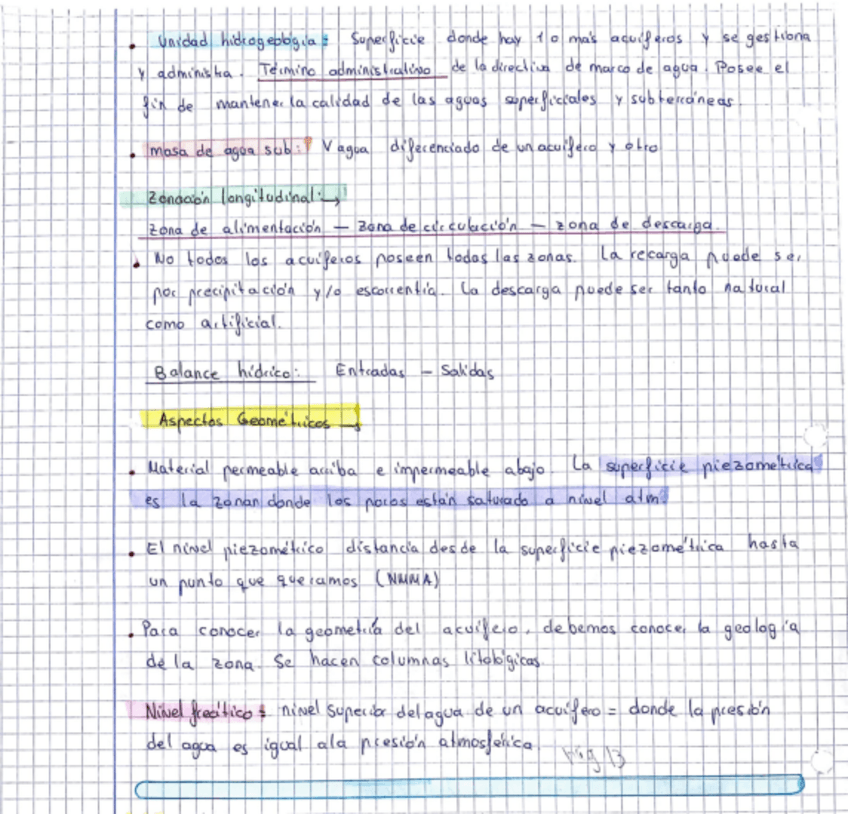 • Unidad hidrogeología: Superficie donde hay 1 o más acuíferos y se gestiona
y administra. Término administrativo de la directiva de marco de agua. Posee el
fin de mantener la calidad de las aguas superficiales y subterráneas.
• masa de agua sub: V agua diferenciado de un acuífero y otro
Zonación longitudinal: →
Zona de alimentación — Zona de circulación — zona de descarga.
• No todos los acuíferos poseen todas las zonas. La recarga puede ser
por precipitación y/o escorrentía. La descarga puede ser tanto natural
como artificial.
Balance hídrico: Entradas – Salidas
Aspectos Geométricos →
• Material permeable arriba e impermeable abajo. La superficie piezométrica
es la zonan donde los poros están saturado a nivel atm.
• El nivel piezométrico distancia desde la superficie piezométrica hasta
un punto que queramos (NMMA)
• Para conocer la geometría del acuífero, debemos conocer la geología
de la zona. Se hacen columnas litológicas.
Nivel freático: nivel superior del agua de un acuífero = donde la presión
del agua es igual a la presión atmosférica. Pág 13